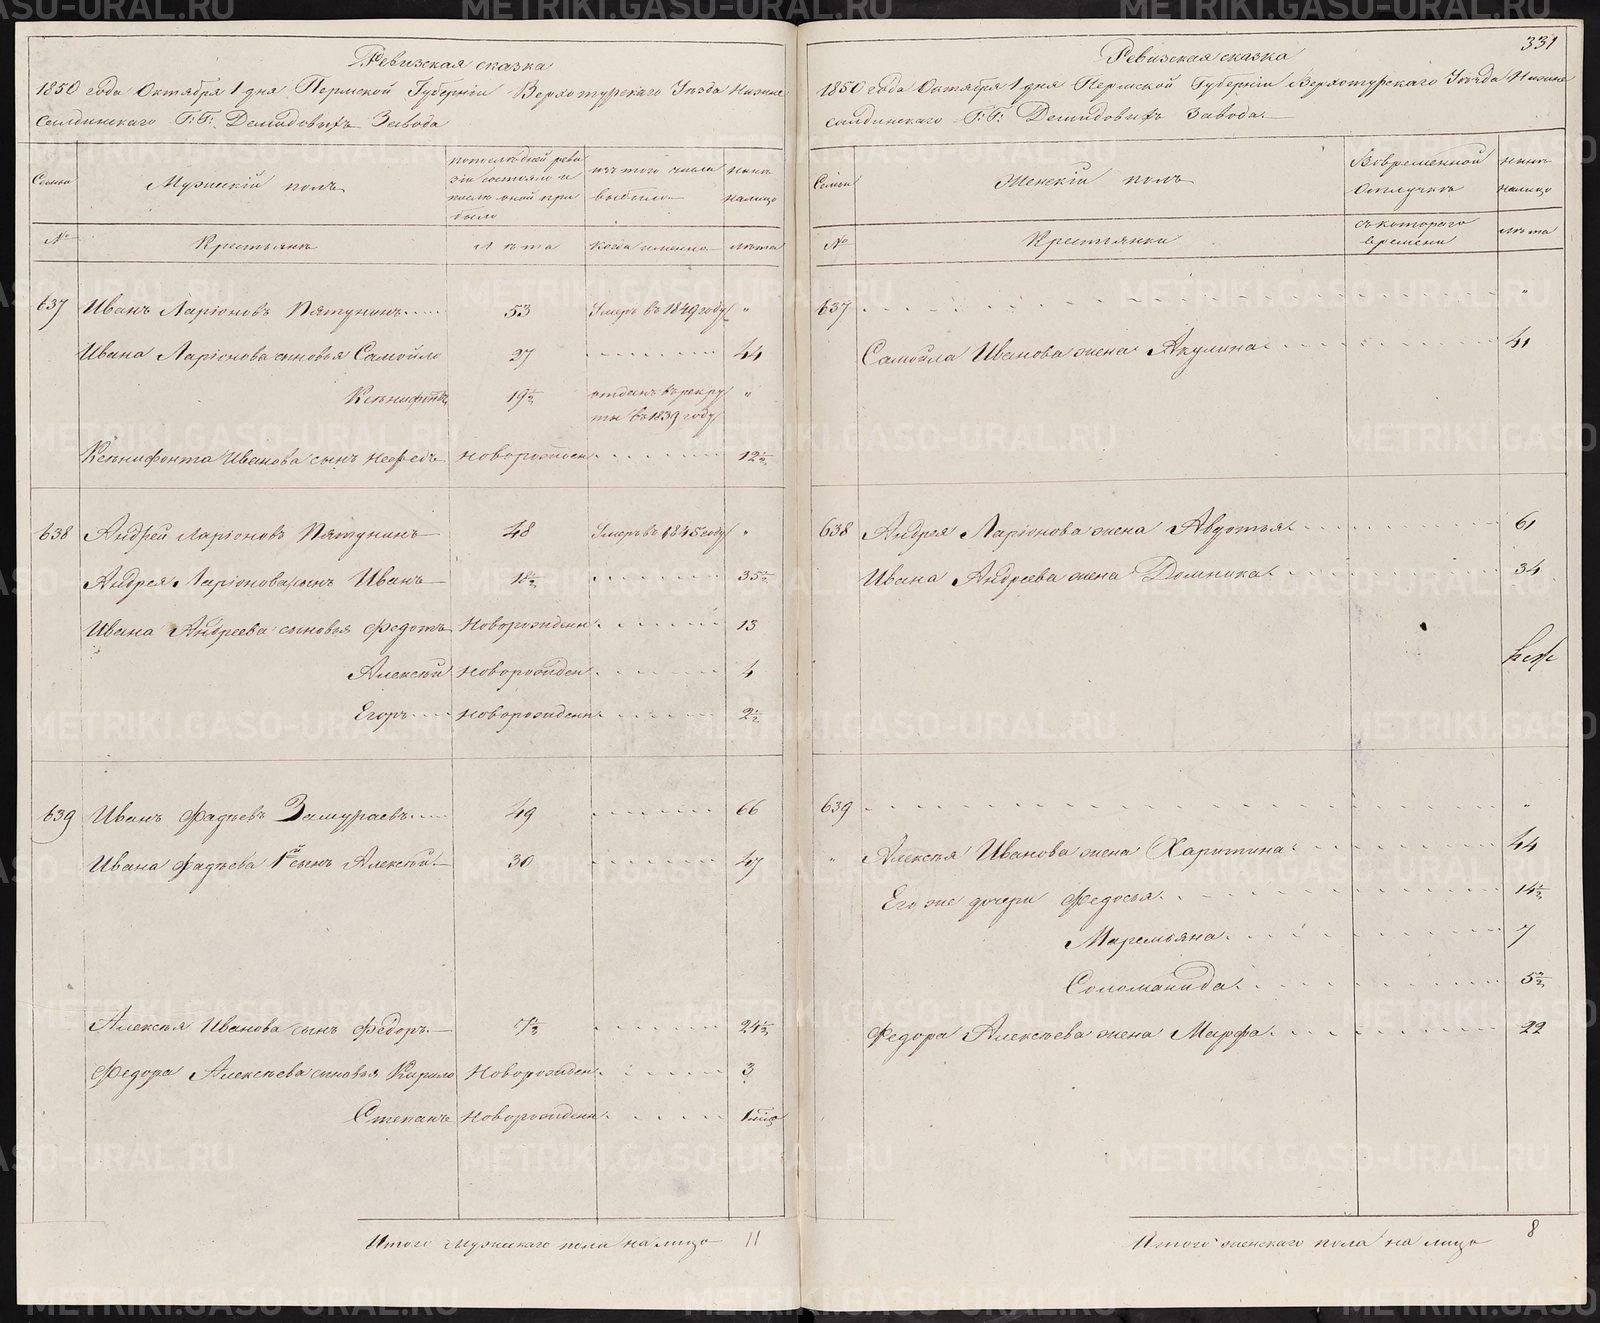 Ревизская сказка
1850 года Октября 1 дня Пермской Губернiи Верхотурскаго Уѣзда Нижне
салдинскаго Г:Г: Демидовыхъ Завода
Семьи
Мужескiй полъ
по последней реви
зiи состояло и
после оной при
было
изъ того числа
выбыло
нынѣ
налицо
№
Крестьянъ
Лѣта
когда именно
лѣта
637 Иванъ Ларiоновъ Пятунинъ 53 Умеръ въ 1849 году "
Ивана Ларiонова сыновья Самойло 27 44
Ксенифонтъ 19½ отданъ въ рекру "
ты въ 1839 году
Ксенифонта Иванова сынъ Нефедъ новорожден 12½
638 Андрей Ларiоновъ Пятунинъ 48 Умеръ въ 1845 году "
Андрея Ларiонова сынъ Иванъ 18½ 35½
Ивана Андреева сыновья Федотъ Новорожденн 13
Алексѣй новорожден 4
Егоръ новорожденн 2½
639 Иванъ Фадѣевъ Замураевъ 49 66
Ивана Фадѣева 1й сынъ Алексѣй 30 47
Алексѣя Иванова сынъ Федоръ 7½ 24½
Федора Алексѣева сыновья Кирило Новорожден 3
Степанъ новорожденн 1 мѣся
Итого мужескаго пола на лицо 11
331
Ревизская сказка
1850 года Октября 1 дня Пермской Губернiи Верхотурскаго Уѣзда Нижне
салдинскаго Г:Г: Демидовыхъ Завода
Семьи
Женскiй полъ
Во временной
отлучкѣ
нынѣ
налицо
№
Крестьянки
съ котораго
времени
лѣта
637 "
Самойла Иванова жена Акулина 41
638 Андрея Ларiонова жена Авдотья 61
Ивана Андреева жена Домника 34
639 "
" Алексѣя Иванова жена Харитина 44
Его же дочери Федосья 14½
Маремьяна 7
Соломанида 5½
Федора Алексѣева жена Марфа 22
Итого женскаго пола на лицо 8
METRIKI.GASO-URAL.RU